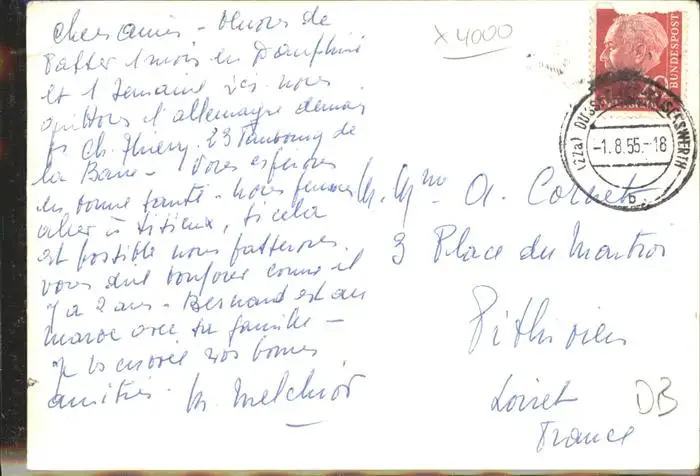 Chers amis - Venons de
passer 1 mois en Dauphiné
et 1 semaine ici nous
quittons l'allemagne demain
Ch. Thierry. 23 Faubourg de
la Barre - Vous espérons
en bonne santé - nous pensons
aller à si cela
est possible nous passerons
vous dire bonjour comme il
y a 2 ans - Bernard est au
maroc avec sa famille -
Je vous envoie nos bonnes
amitiés. M. Melchior
X 4000
BUNDESPOST
(22a) DÜSSELDORF-KAISERSWERTH
-1.8.55.-18
b
M. Mme A. Cornet
3 Place du Martroi
Pithiviers
Loiret
France
DB